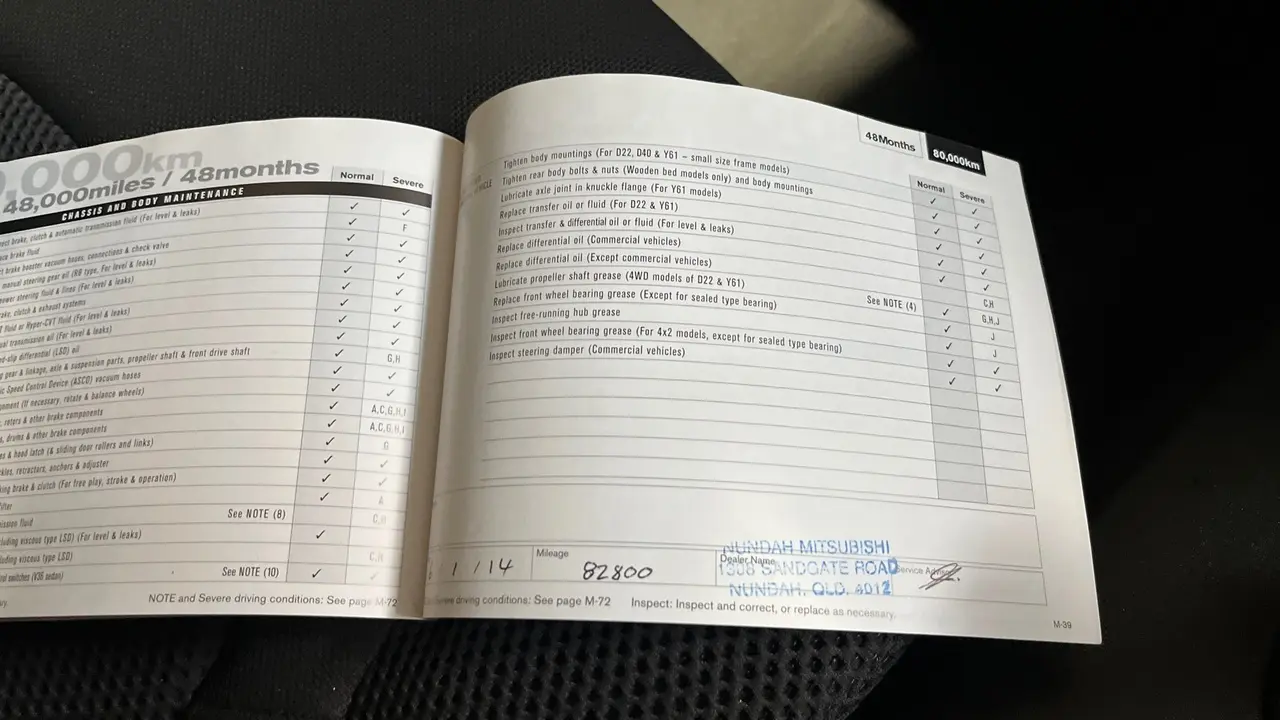 ,000km
48,000miles / 48months
Normal
Severe
CHASSIS AND BODY MAINTENANCE
brake, clutch & automatic transmission fluid (For level & leaks)
✓ ✓
brake fluid
✓ F
brake booster vacuum hoses, connections & check valve
✓ ✓
manual steering gear oil (RB type, For level & leaks)
✓ ✓
power steering fluid & lines (For level & leaks)
✓ ✓
brake, clutch & exhaust systems
✓ ✓
fluid or Hyper-CVT fluid (For level & leaks)
✓ ✓
transmission oil (For level & leaks)
✓ ✓
differential (LSD) oil
✓ ✓
gear & linkage, axle & suspension parts, propeller shaft & front drive shaft
✓ G,H
Speed Control Device (ASCD) vacuum hoses
✓ ✓
(If necessary, rotate & balance wheels)
✓ ✓
rotors & other brake components
✓ A,C,G,H,I
drums & other brake components
✓ A,C,G,H,I
& hood latch (& sliding door rollers and links)
✓ G
retractors, anchors & adjuster
✓ ✓
brake & clutch (For free play, stroke & operation)
✓ ✓
✓ A
fluid See NOTE (8)
C,H
viscous type LSD) (For level & leaks)
✓
viscous type LSD)
C,H
switches (V35 sedan) See NOTE (10)
✓ ✓
NOTE and Severe driving conditions: See page M-72
48Months
80,000km
Normal
Severe
Tighten body mountings (For D22, D40 & Y61 – small size frame models)
✓ ✓
Tighten rear body bolts & nuts (Wooden bed models only) and body mountings
✓ ✓
Lubricate axle joint in knuckle flange (For Y61 models)
✓ ✓
Replace transfer oil or fluid (For D22 & Y61)
✓ ✓
Inspect transfer & differential oil or fluid (For level & leaks)
✓ ✓
Replace differential oil (Commercial vehicles)
✓ ✓
Replace differential oil (Except commercial vehicles)
C,H
Lubricate propeller shaft grease (4WD models of D22 & Y61)
See NOTE (4) ✓ G,H,J
Replace front wheel bearing grease (Except for sealed type bearing)
✓ J
Inspect free-running hub grease
✓ J
Inspect front wheel bearing grease (For 4x2 models, except for sealed type bearing)
✓ ✓
Inspect steering damper (Commercial vehicles)
✓ ✓
1 / 14
Mileage
82800
Dealer Name
NUNDAH MITSUBISHI
1306 SANDGATE ROAD
NUNDAH. QLD. 4012
Service
driving conditions: See page M-72 Inspect: Inspect and correct, or replace as necessary.
M-39